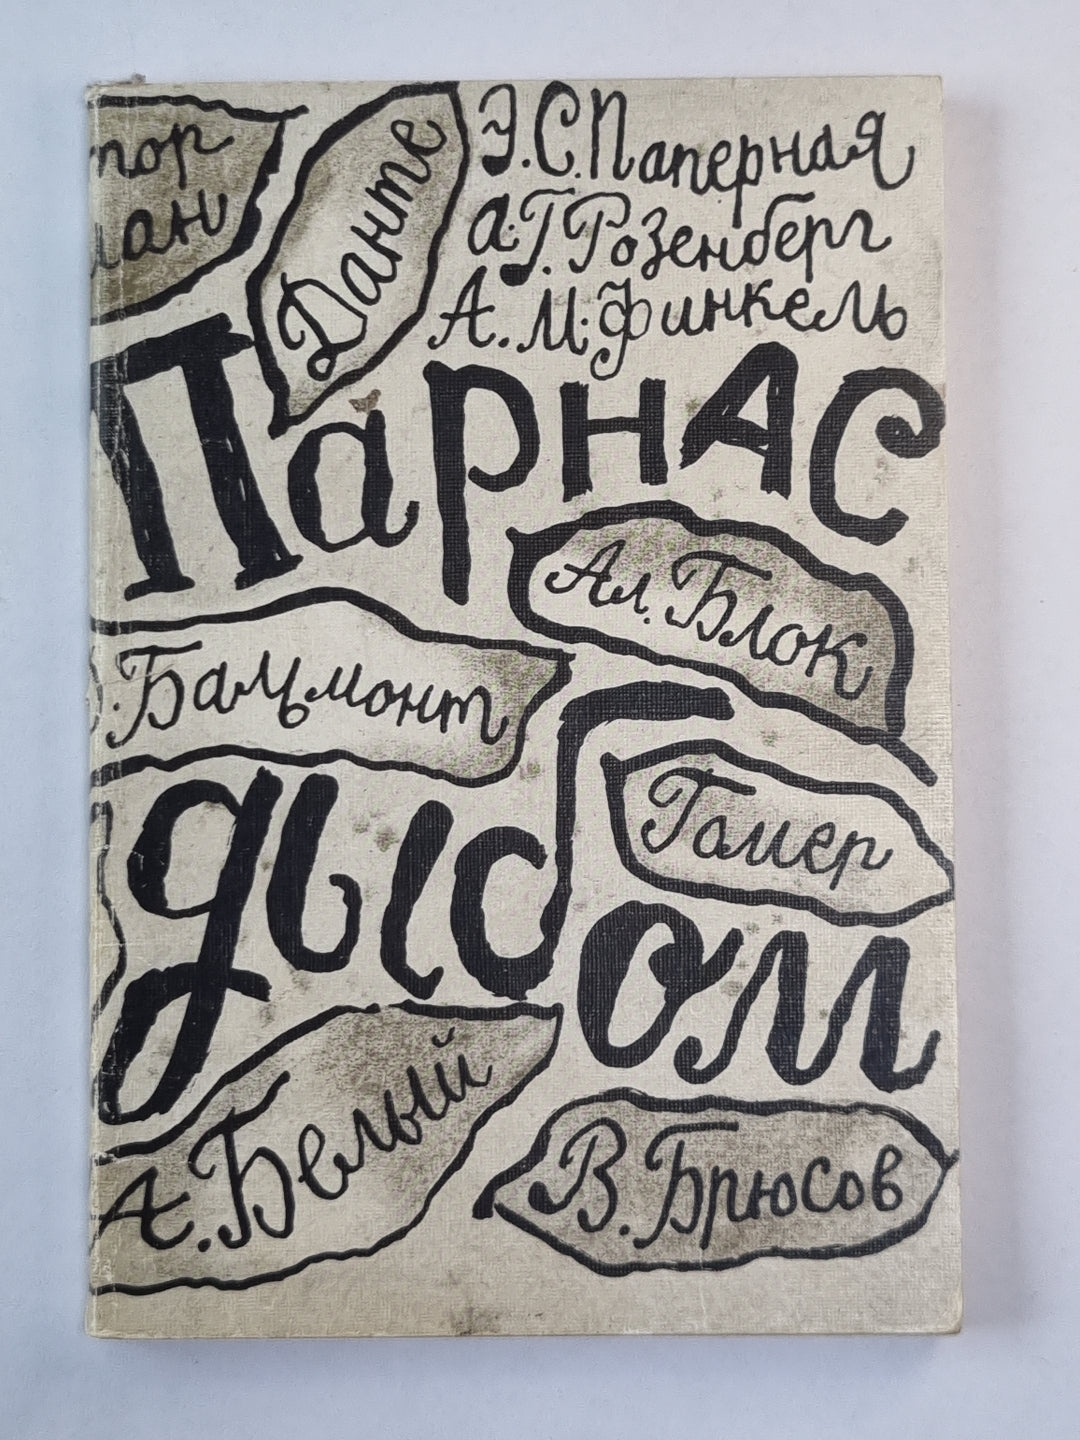 Э.С.Паперная
А.Г.Розенберг
А.М.Финкель
Данте
Парнас
Ал. Блок
Бальмонт
дыбом
Гомер
А. Белый
В. Брюсов